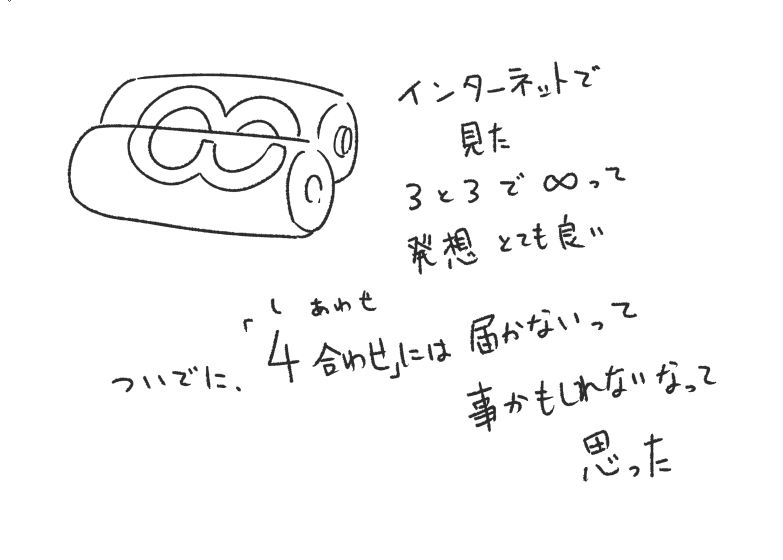 インターネットで
見た
3と3で∞って
発想とても良い
しあわせ
ついでに、「4合わせ」には届かないって
事かもしれないなって
思った